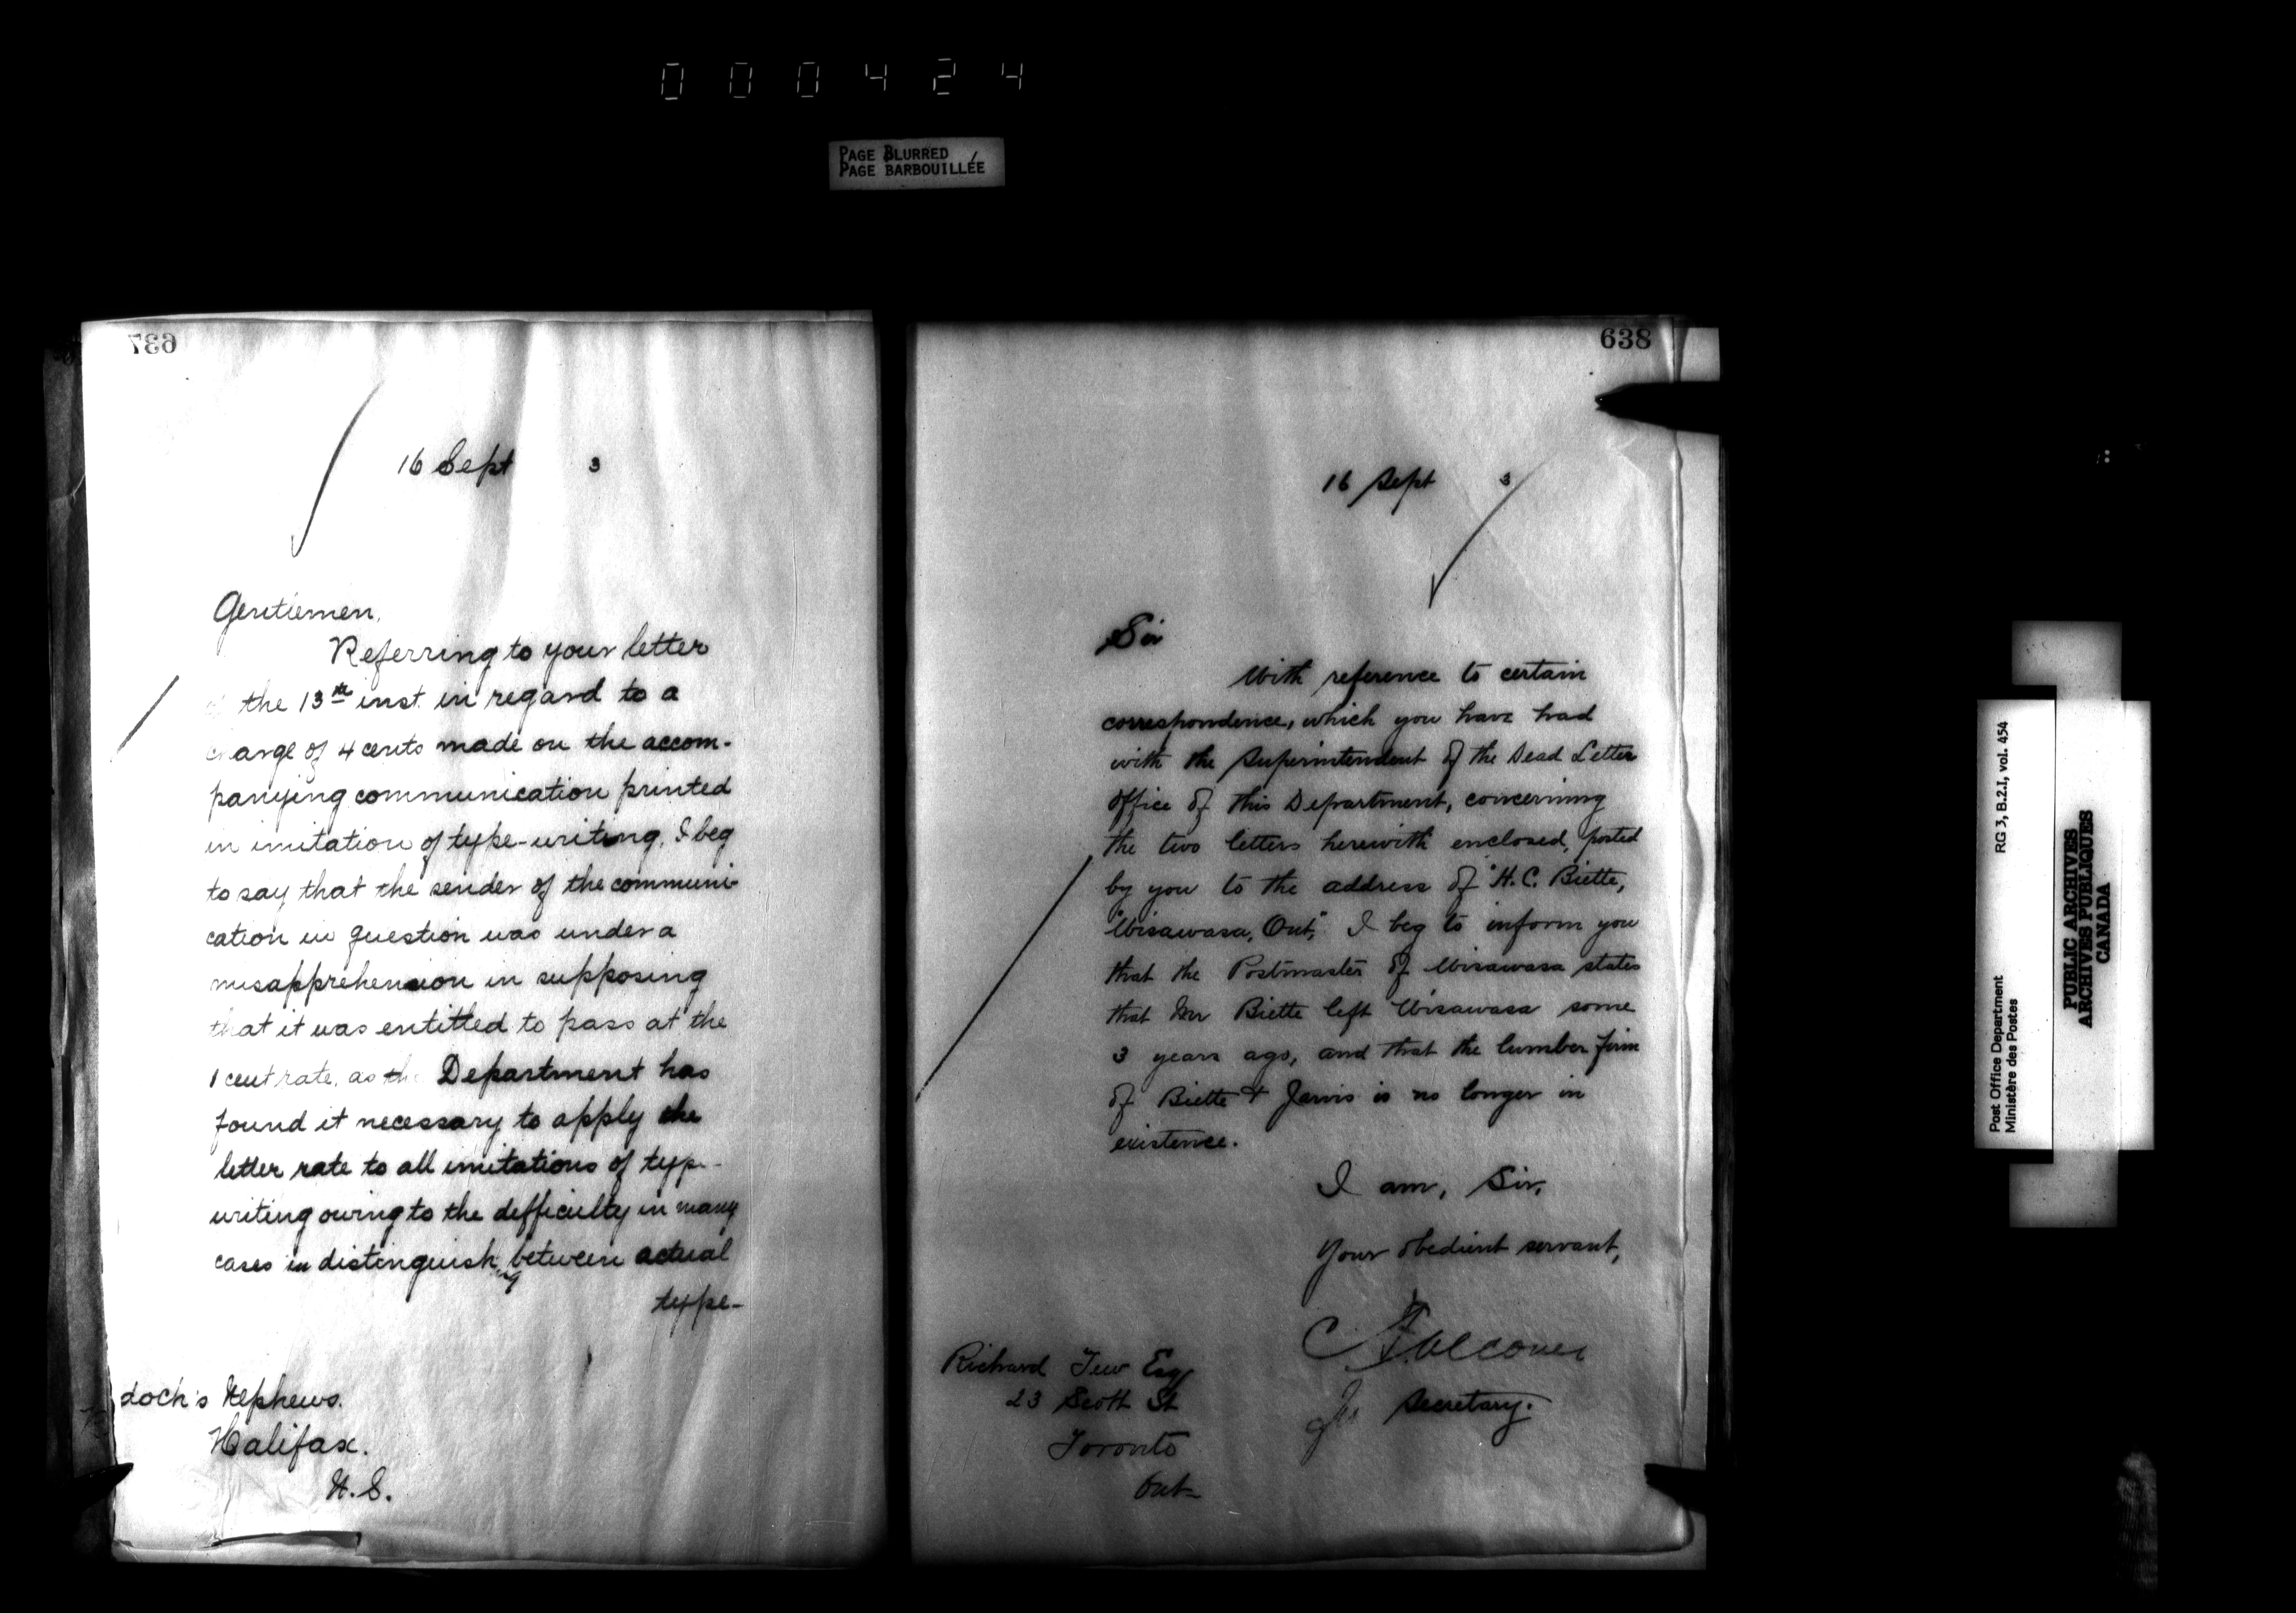 000424
PAGE BLURRED
PAGE BARBOUILLÉE
637
16 Sept 3
Gentlemen,
Referring to your letter
of the 13th inst. in regard to a
charge of 4 cents made on the accom-
panying communication printed
in imitation of type-writing, I beg
to say that the sender of the communi-
cation in question was under a
misapprehension in supposing
that it was entitled to pass at the
1 cent rate, as the Department has
found it necessary to apply the
letter rate to all imitations of type-
writing owing to the difficulty in many
cases in distinguishing between actual
type-
doch's Nephews.
Halifax.
N.S.
638
16 Sept 3
Sir
With reference to certain
correspondence, which you have had
with the Superintendent of the Dead Letter
Office of this Department, concerning
the two letters herewith enclosed, posted
by you to the address of "H.C. Biette,
Wisawasa, Ont," I beg to inform you
that the Postmaster of Wisawasa states
that Mr Biette left Wisawasa some
3 years ago, and that the lumber firm
of Biette & Jarvis is no longer in
existence.
I am, Sir,
Your obedient servant,
C Falconer
for Secretary.
Richard Tew Esq
23 Scott St
Toronto
Ont-
Post Office Department
Ministère des Postes
RG 3, B.2.I, vol. 454
PUBLIC ARCHIVES
ARCHIVES PUBLIQUES
CANADA